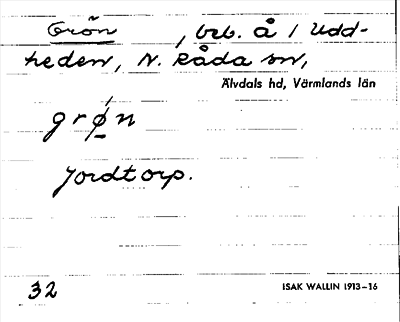 Grön, beb. å / Udd-
heden, N. Råda sn,
Älvdals hd, Värmlands län
grøn
Jordtorp.
32
ISAK WALLIN 1913–16